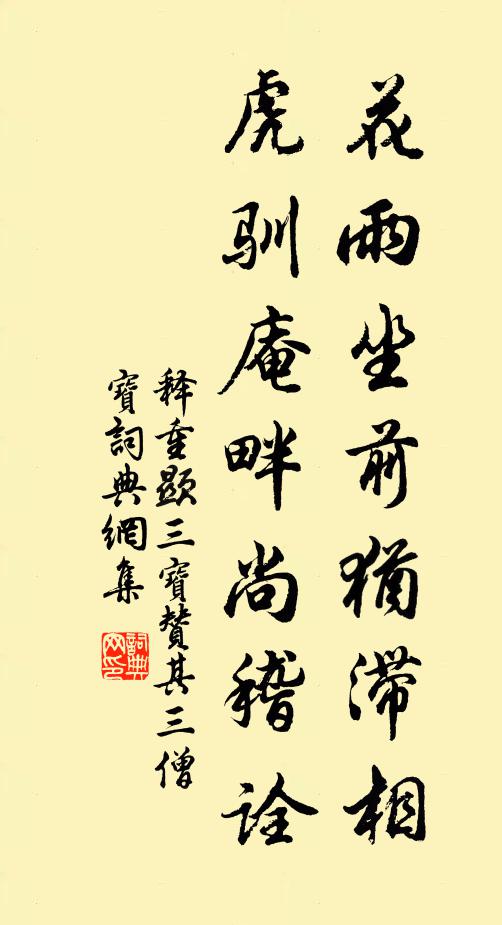 花雨坐前猶滯相
虎馴庵畔尚稽詮
释重顯三寶贊其三僧
寶詞典網集
詞典网印